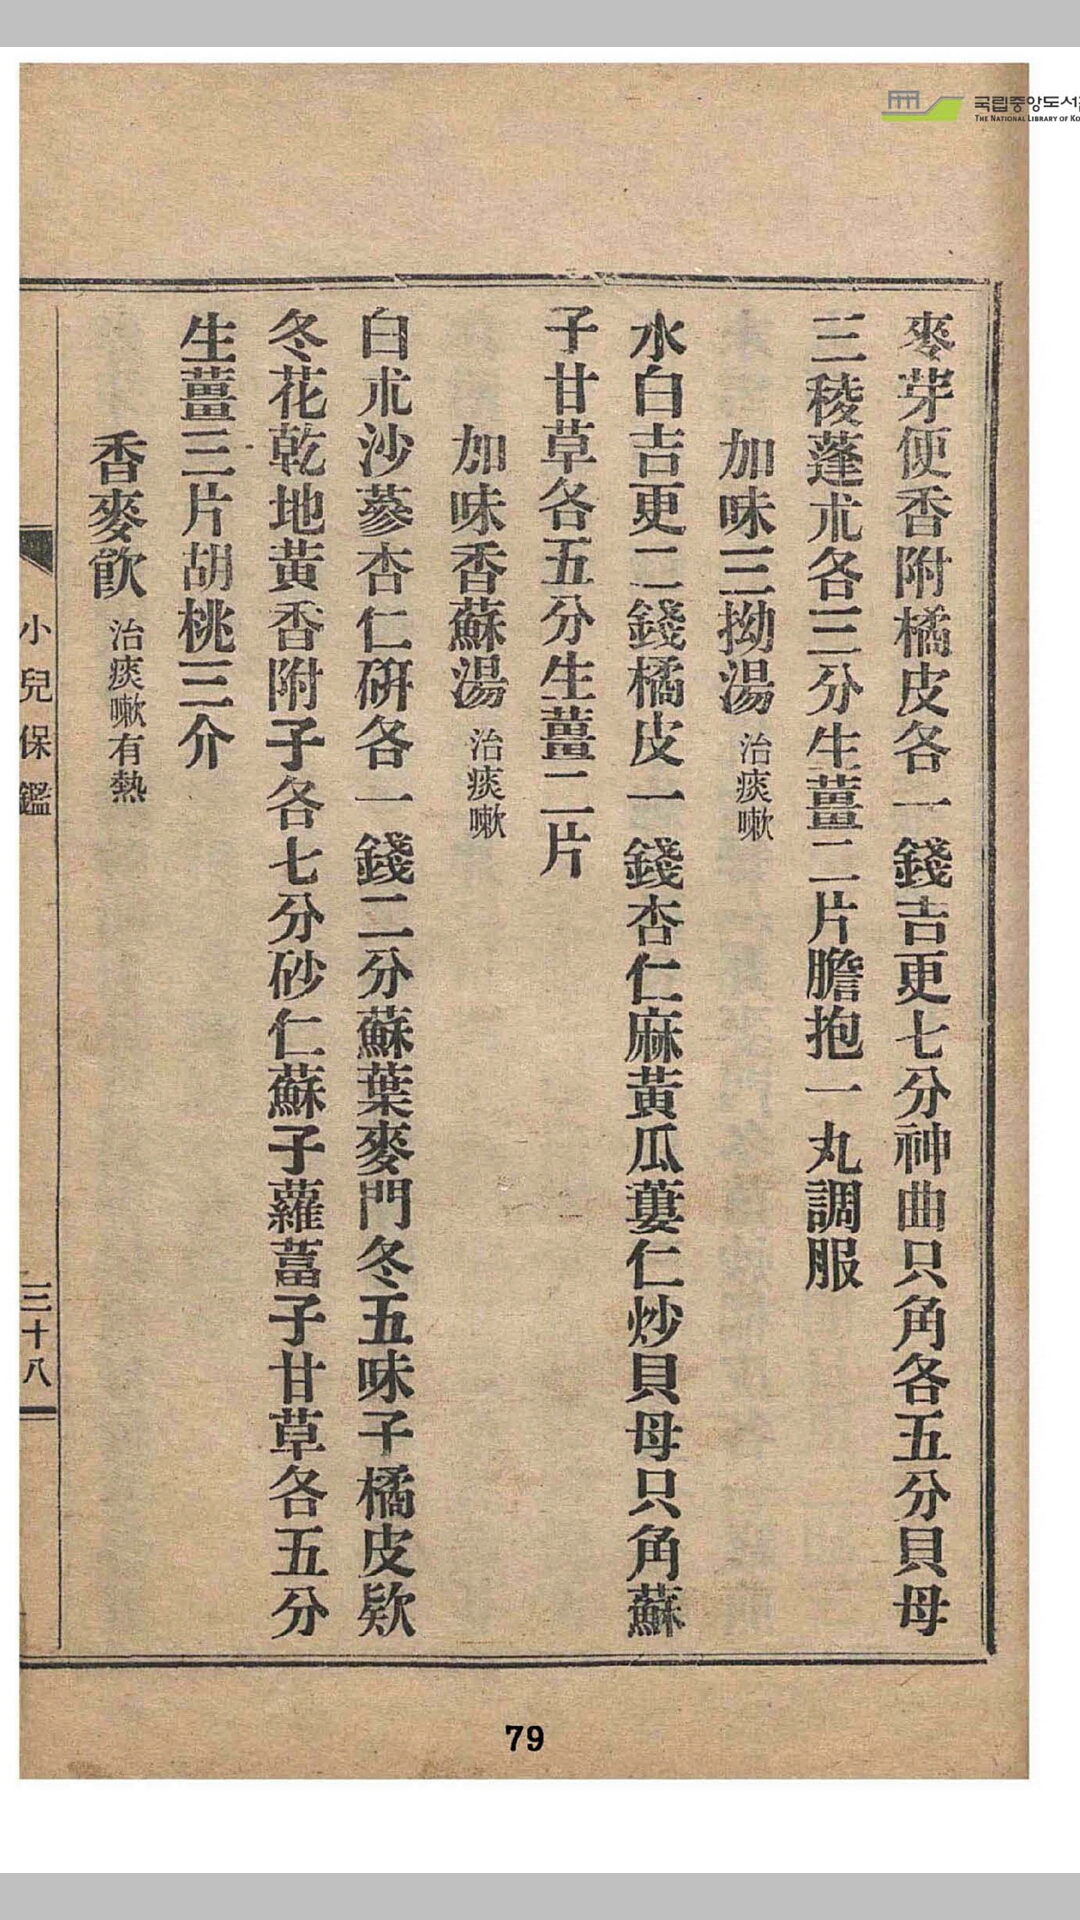 국립중앙도서
THE NATIONAL LIBRARY OF KO
麥芽便香附橘皮各一錢吉更七分神曲只角各五分貝母
三稜蓬朮各三分生薑二片膽抱一丸調服
加味三拗湯 治痰嗽
水白吉更二錢橘皮一錢杏仁麻黃瓜蔞仁炒貝母只角蘇
子甘草各五分生薑二片
加味香蘇湯 治痰嗽
白朮沙蔘杏仁硏各一錢二分蘇葉麥門冬五味子橘皮欵
冬花乾地黃香附子各七分砂仁蘇子蘿葍子甘草各五分
生薑三片胡桃三介
香麥飮 治痰嗽有熱
小兒保鑑
三十八
79